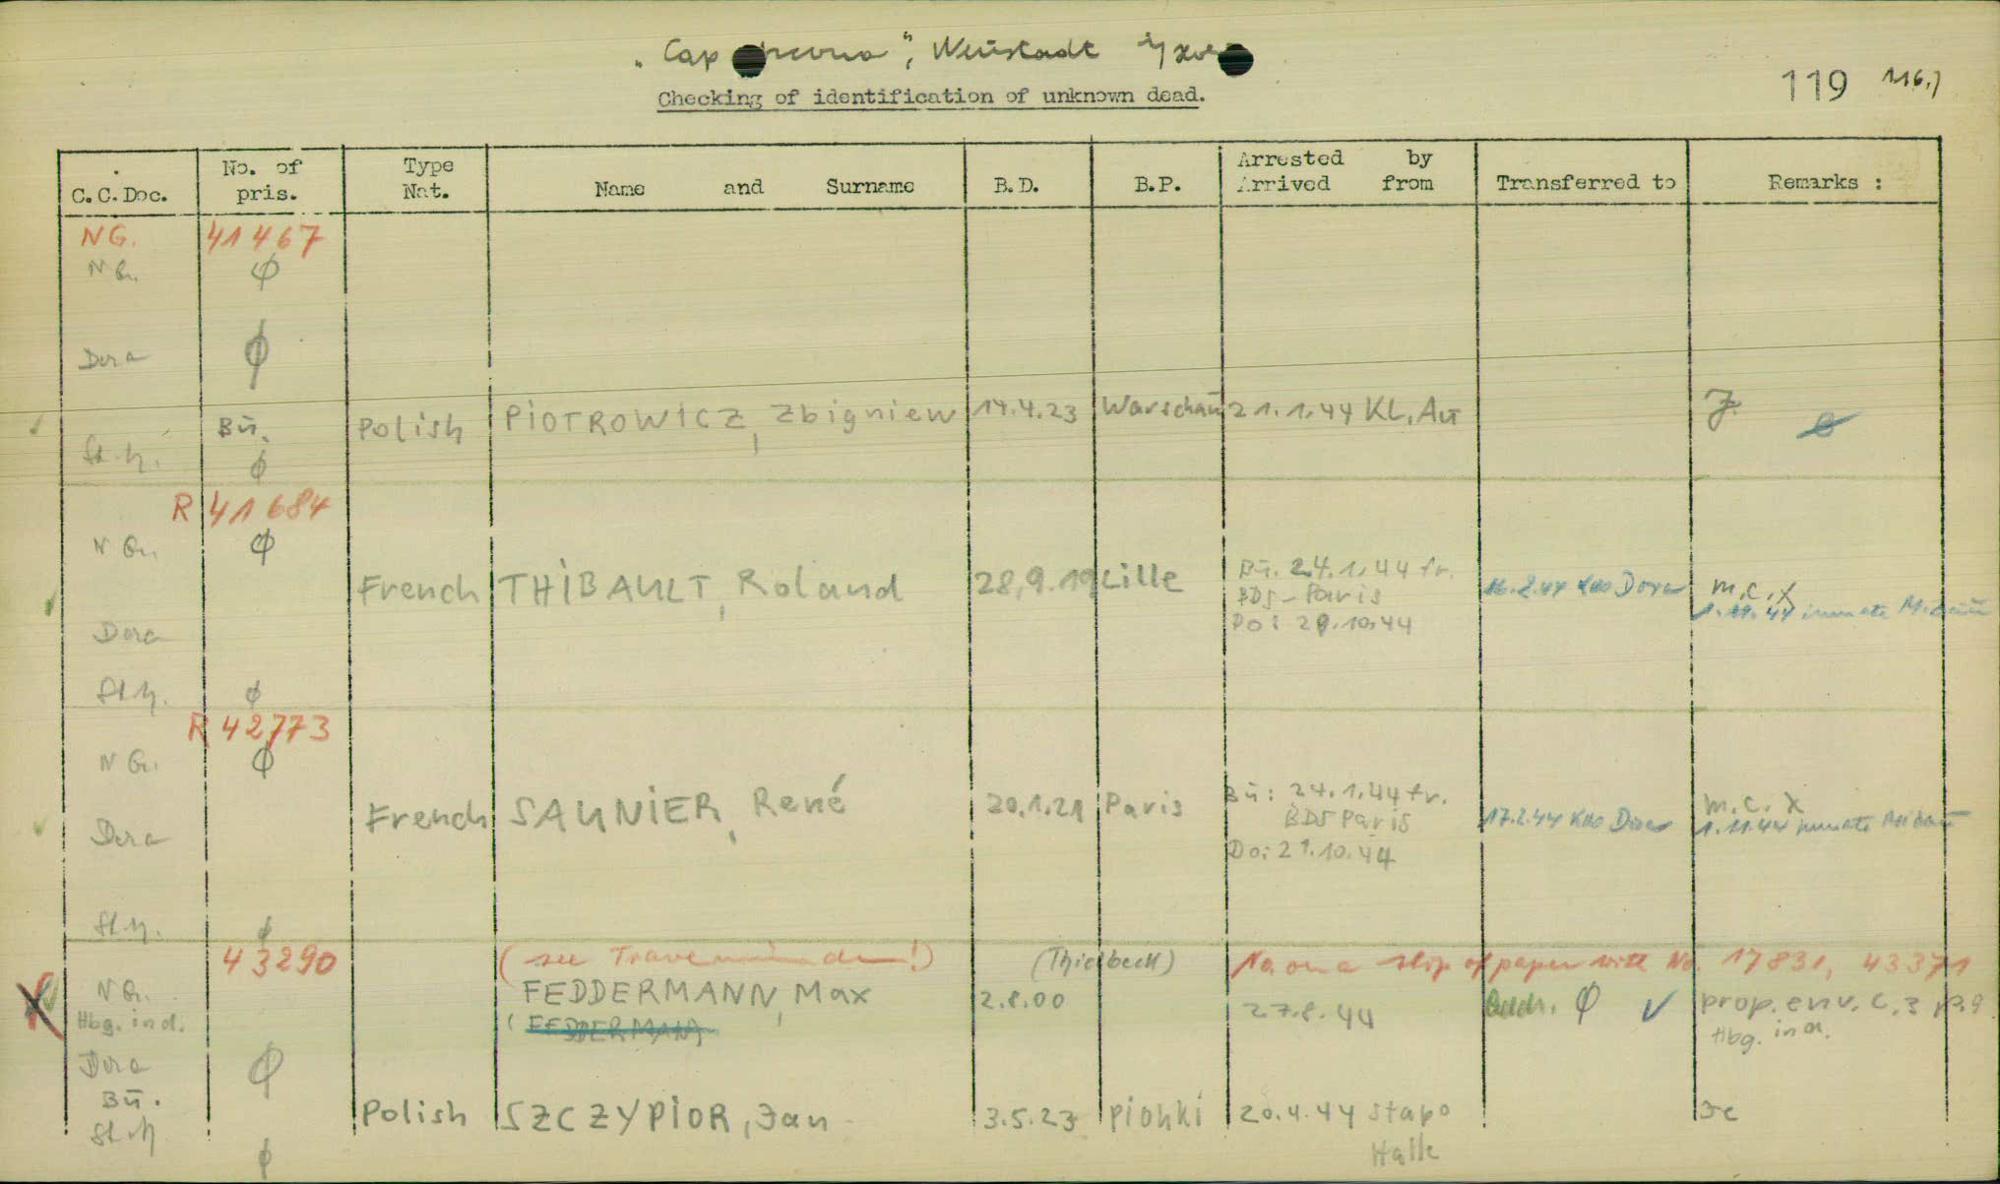 "Cap Arcona", Neustadt
Checking of identification of unknown dead.
119 116.)
C.C.Doc. No. of pris. Type Nat. Name and Surname B.D. B.P. Arrested by Arrived from Transferred to Remarks :
NG. 41467
N G. ϕ
Dora ϕ
Bū. Polish PIOTROWICZ, Zbigniew 14.4.23 Warschau 21.1.44 KL. Au
ϕ
R 41684
N G. ϕ
French THIBAULT, Roland 28.9.19 Lille Bū. 24.1.44 fr. BDS-Paris Do: 29.10.44 16.2.44 Kdo Dora m.c. X 1.11.44 inmate
Dora
ϕ
R 42773
N G. ϕ
French SAUNIER, René 20.1.21 Paris Bū: 24.1.44 fr. BDS Paris Do: 29.10.44 17.2.44 Kdo Dora m.c. X 1.11.44 inmate
Dora
ϕ
43290 (see Travemünde!) (Thielbeck) No on a slip of paper with No. 17831, 43371
N G. FEDDERMANN, Max 2.8.00 27.8.44 Buch. ϕ ✓ prop. env. C.3 p.9
Hbg. ind. (FEDDERMAN) Hbg. ind.
Dora ϕ
Bū.
Polish SZCZYPIOR, Jan 3.5.23 Pionki 20.4.44 Stapo Halle
ϕ